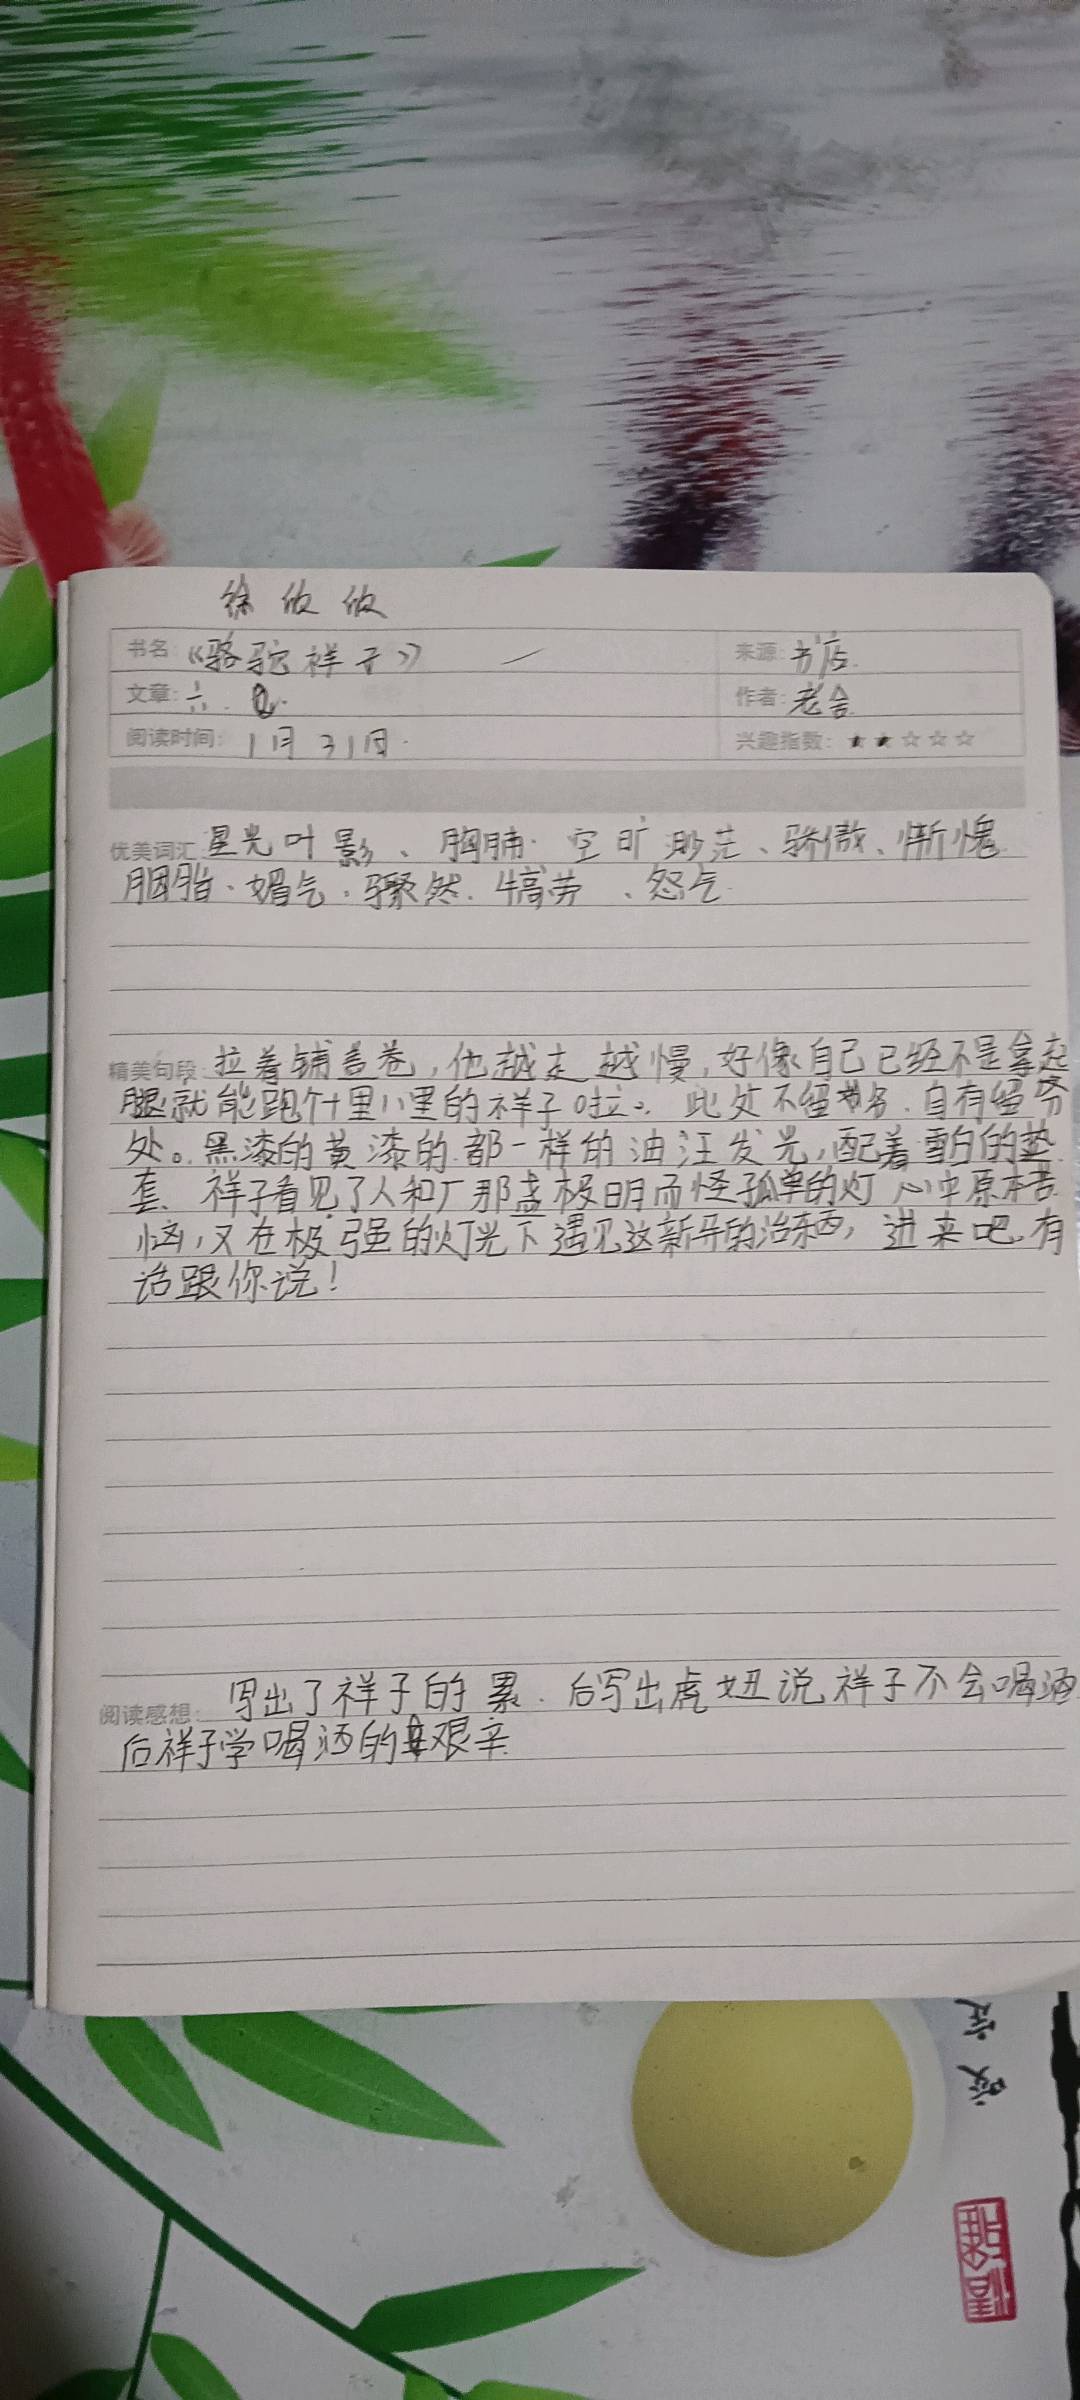 徐攸攸
书名:《骆驼祥子》 来源:书店.
文章:六. 作者:老舍
阅读时间: 1月31日. 兴趣指数:★★☆☆☆
优美词汇:星光叶影、胸脯.空旷渺茫、骄傲、惭愧.
胭脂、媚气、骤然.犒劳、怒气.
精美句段:拉着铺盖卷,他越走越慢,好像自己已经不是拿起
腿就能跑个十里八里的祥子啦。此处不留爷.自有留爷
处。黑漆的黄漆的.都一样的油汪发光,配着雪白的垫
套、祥子看见了人和厂那盏极明而怪孤单的灯 心中原本苦
恼,又在极强的灯光下遇见这新开的治东西,进来吧.有
话跟你说!
阅读感想: 写出了祥子的累.后写出虎妞说祥子不会喝酒
后祥子学喝酒的艰辛.